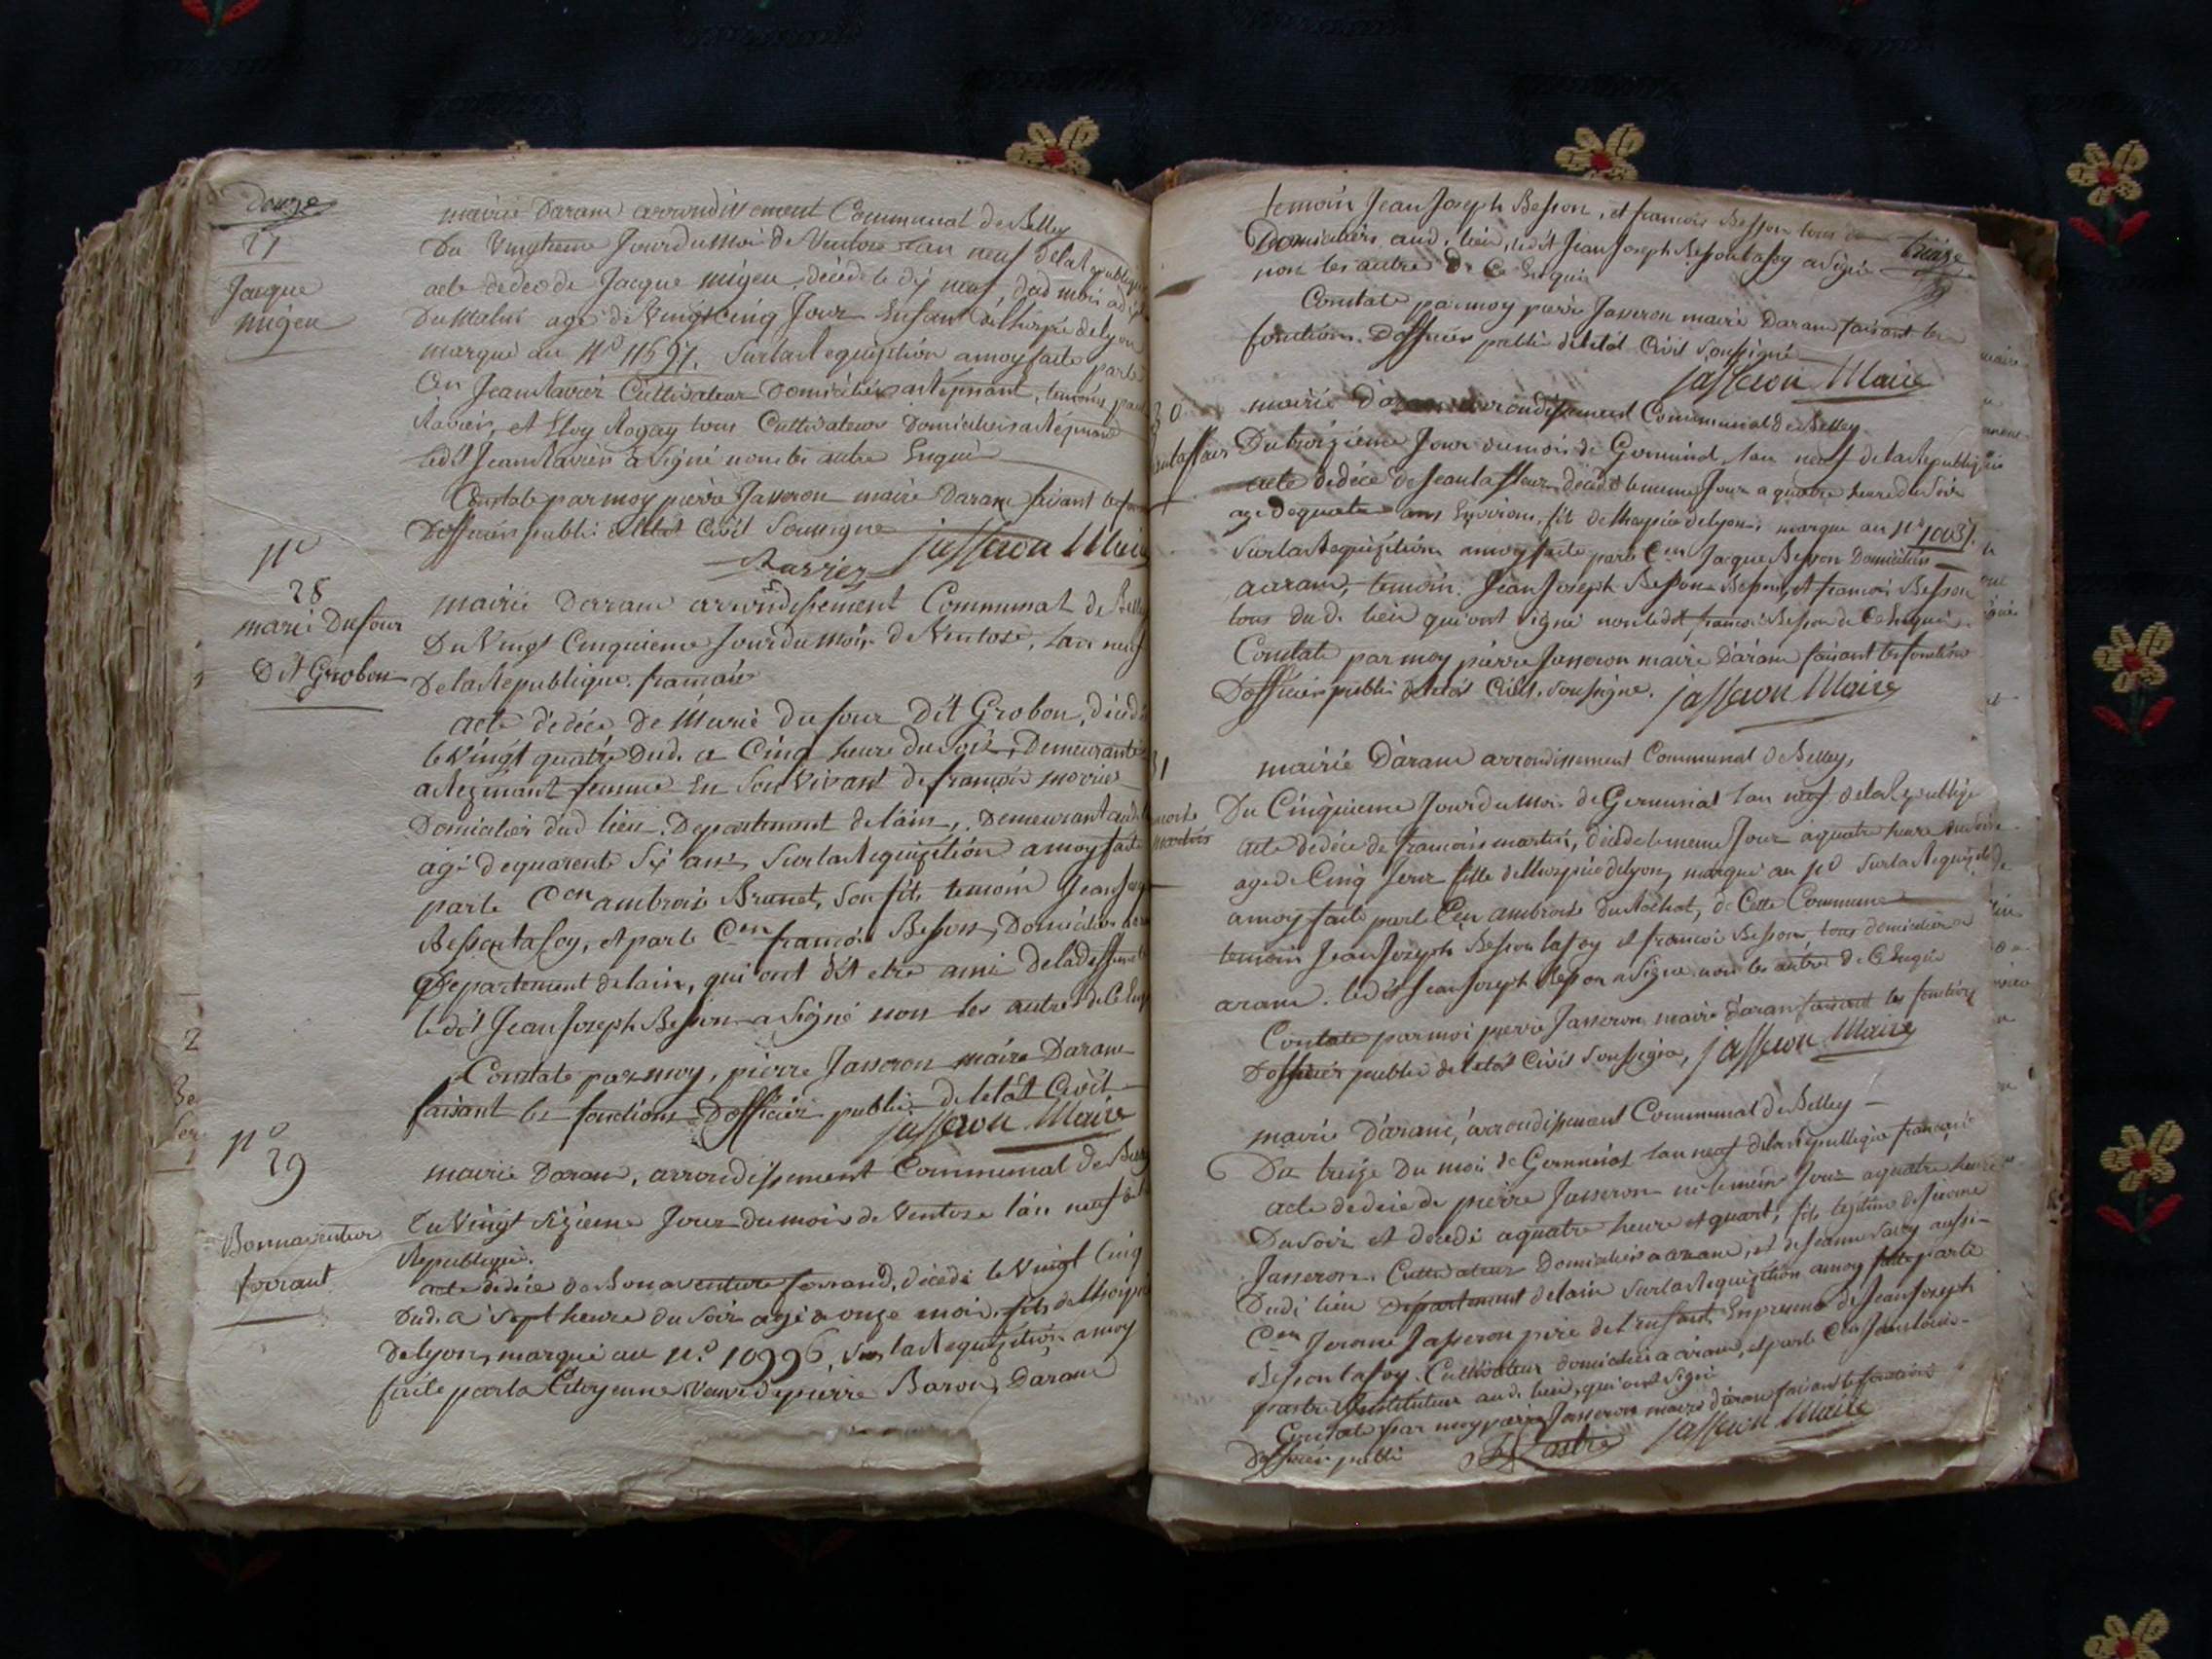 Douze
27
Jacque
migeu
mairie Daranc arrondissement Communal de Belley
Du Vingtieme Jour du Moi de Ventose l'an neuf de la Republique
acte de deces de Jacque migeu, décédé le dix neuf dud mois a dix
Du Matin agé de Vingt Cinq Jour Enfant de L'hospice de lyon
marqué au N.º 11597. Sur la Requisition a moy faite par le
Cen Jean Ravier Cultivateur Domicilié a Resinant, temoins
Ravier, et Eloy Rogay tous Cultivateurs Domiciliers a Resinand
ledit Jean Ravier a Signé non les autre Enquis
Constate par moy pierre Jasseron maire Daranc faisant les
Dofficier public de létat Civil Soussigne
Ravier Jasseron Maire
Nº
28
marie Dufour
Dit Grobon
mairie Daranc arrondissement Communal de Belley
Du Vingt Cinquieme Jour du Moi de Ventose, l'an neuf
De la Republique francaise
acte dedéce de Marie Dufour Dit Grobon, décédé
le Vingt quatre dud. a Cinq heure Du Soir, Demeurante
a Resinant femme En Son Vivant de francois
Domicilier dud lieu, Departement de lain, Demeurant aud.
agé de quarente Six ans, Sur la Requisition a moy faite
par le Cen ambroise Brunet, Son fils temoin Jean Joseph
Besson lafoy, et par le Cen francois Besson, Domicilier
Departement delain, qui ont dit etre ami de la deffunte
ledit Jean Joseph Besson a Signé non les autre de Ce Enquis
Constaté par moy, pierre Jasseron maire Daranc
faisant les fonctions Dofficier public de létat Civil
Jasseron Maire
Nº
29
Bonnaventure
ferraut
mairie Daranc, arrondissement Communal de Belley
Du Vingt Sixieme Jour du mois de Ventose l'an neuf de la
Republique.
acte dedéce de Bonaventure ferrand, décédé le Vingt Cinq
Dud. a Sept heure du Soir agé de onze mois, fils de Lhospice
De lyon, marqué au N.º 10996, Sur la Requisition a moy
faite par la Citoyenne Veuve de pierre Baron, Daranc
treize
temoin Jean Joseph Besson, et francois Besson tous
Domiciliers aud. lieu, ledit Jean Joseph Besson lafoy a Signé
non les autre de Ce Enquis
Constate par moy pierre Jasseron maire Daranc faisant les
fonctions Dofficier public de létat Civil Soussigné
Jasseron Maire
30
mairie Daranc arrondissement Communal de Belley
Du troizieme Jour du mois de Germinal, l'an neuf de la Republique
acte dedéce de Jean lafleur décédé le meme Jour a quatre heure du Soir
age de quatre ans Environ, fils de lhospice de lyon, marque au Nº 10037.
Sur la Requisition a moy faite par le Cen Jacque Besson Domicilier
a aranc, temoin Jean Joseph Besson et francois Besson
tous du d. lieu qui ont signé non ledit francois Besson de Ce Enquis
Constate par moy pierre Jasseron maire Daranc faisant les fonctions
Dofficier public de létat Civil, Soussigne. Jasseron Maire
31
mairie Daranc arrondissement Communal de Belley,
Du Cinquieme Jour du Moi de Germinal l'an neuf de la Republique
acte dedéce de francois martin, décédé le meme Jour a quatre heure du Soir
age de Cinq Jour fille de lhospice de lyon, marqué au Nº Sur la Requisition
a moy faite par le Cen ambroise du Rochat, de Cette Commune
temoin Jean Joseph Besson lafoy et francois Besson tous domicilier a
aranc. ledit Jean Joseph Besson a Signe non les autre de Ce Enquis
Constate par moi pierre Jasseron maire Daranc faisant les fonctions
Dofficier public de létat Civil Soussigne, Jasseron Maire
mairie Daranc, arrondissement Communal de Belley
Du treize Du moi de Germinal l'an neuf de la Republique francaise
acte dedéce de pierre Jasseron né le meme Jour a quatre heure
Du Soir et décédé a quatre heure et quart, fils légitime de Jerome
Jasseron Cultivateur Domicilier a aranc, et de Jeanne Savey aussi
Dudi lieu Departement de lain Sur la Requisition a moy faite par le
Cen Jerome Jasseron pere de l'enfant En presence de Jean Joseph
Besson lafoy Cultivateur domicilier a aranc, et par le Cen Jean Louis
pastre Instituteur aud. lieu, qui ont Signé
Constate par moy pierre Jasseron maire daranc faisant les fonctions
Dofficier public Jasseron Maire